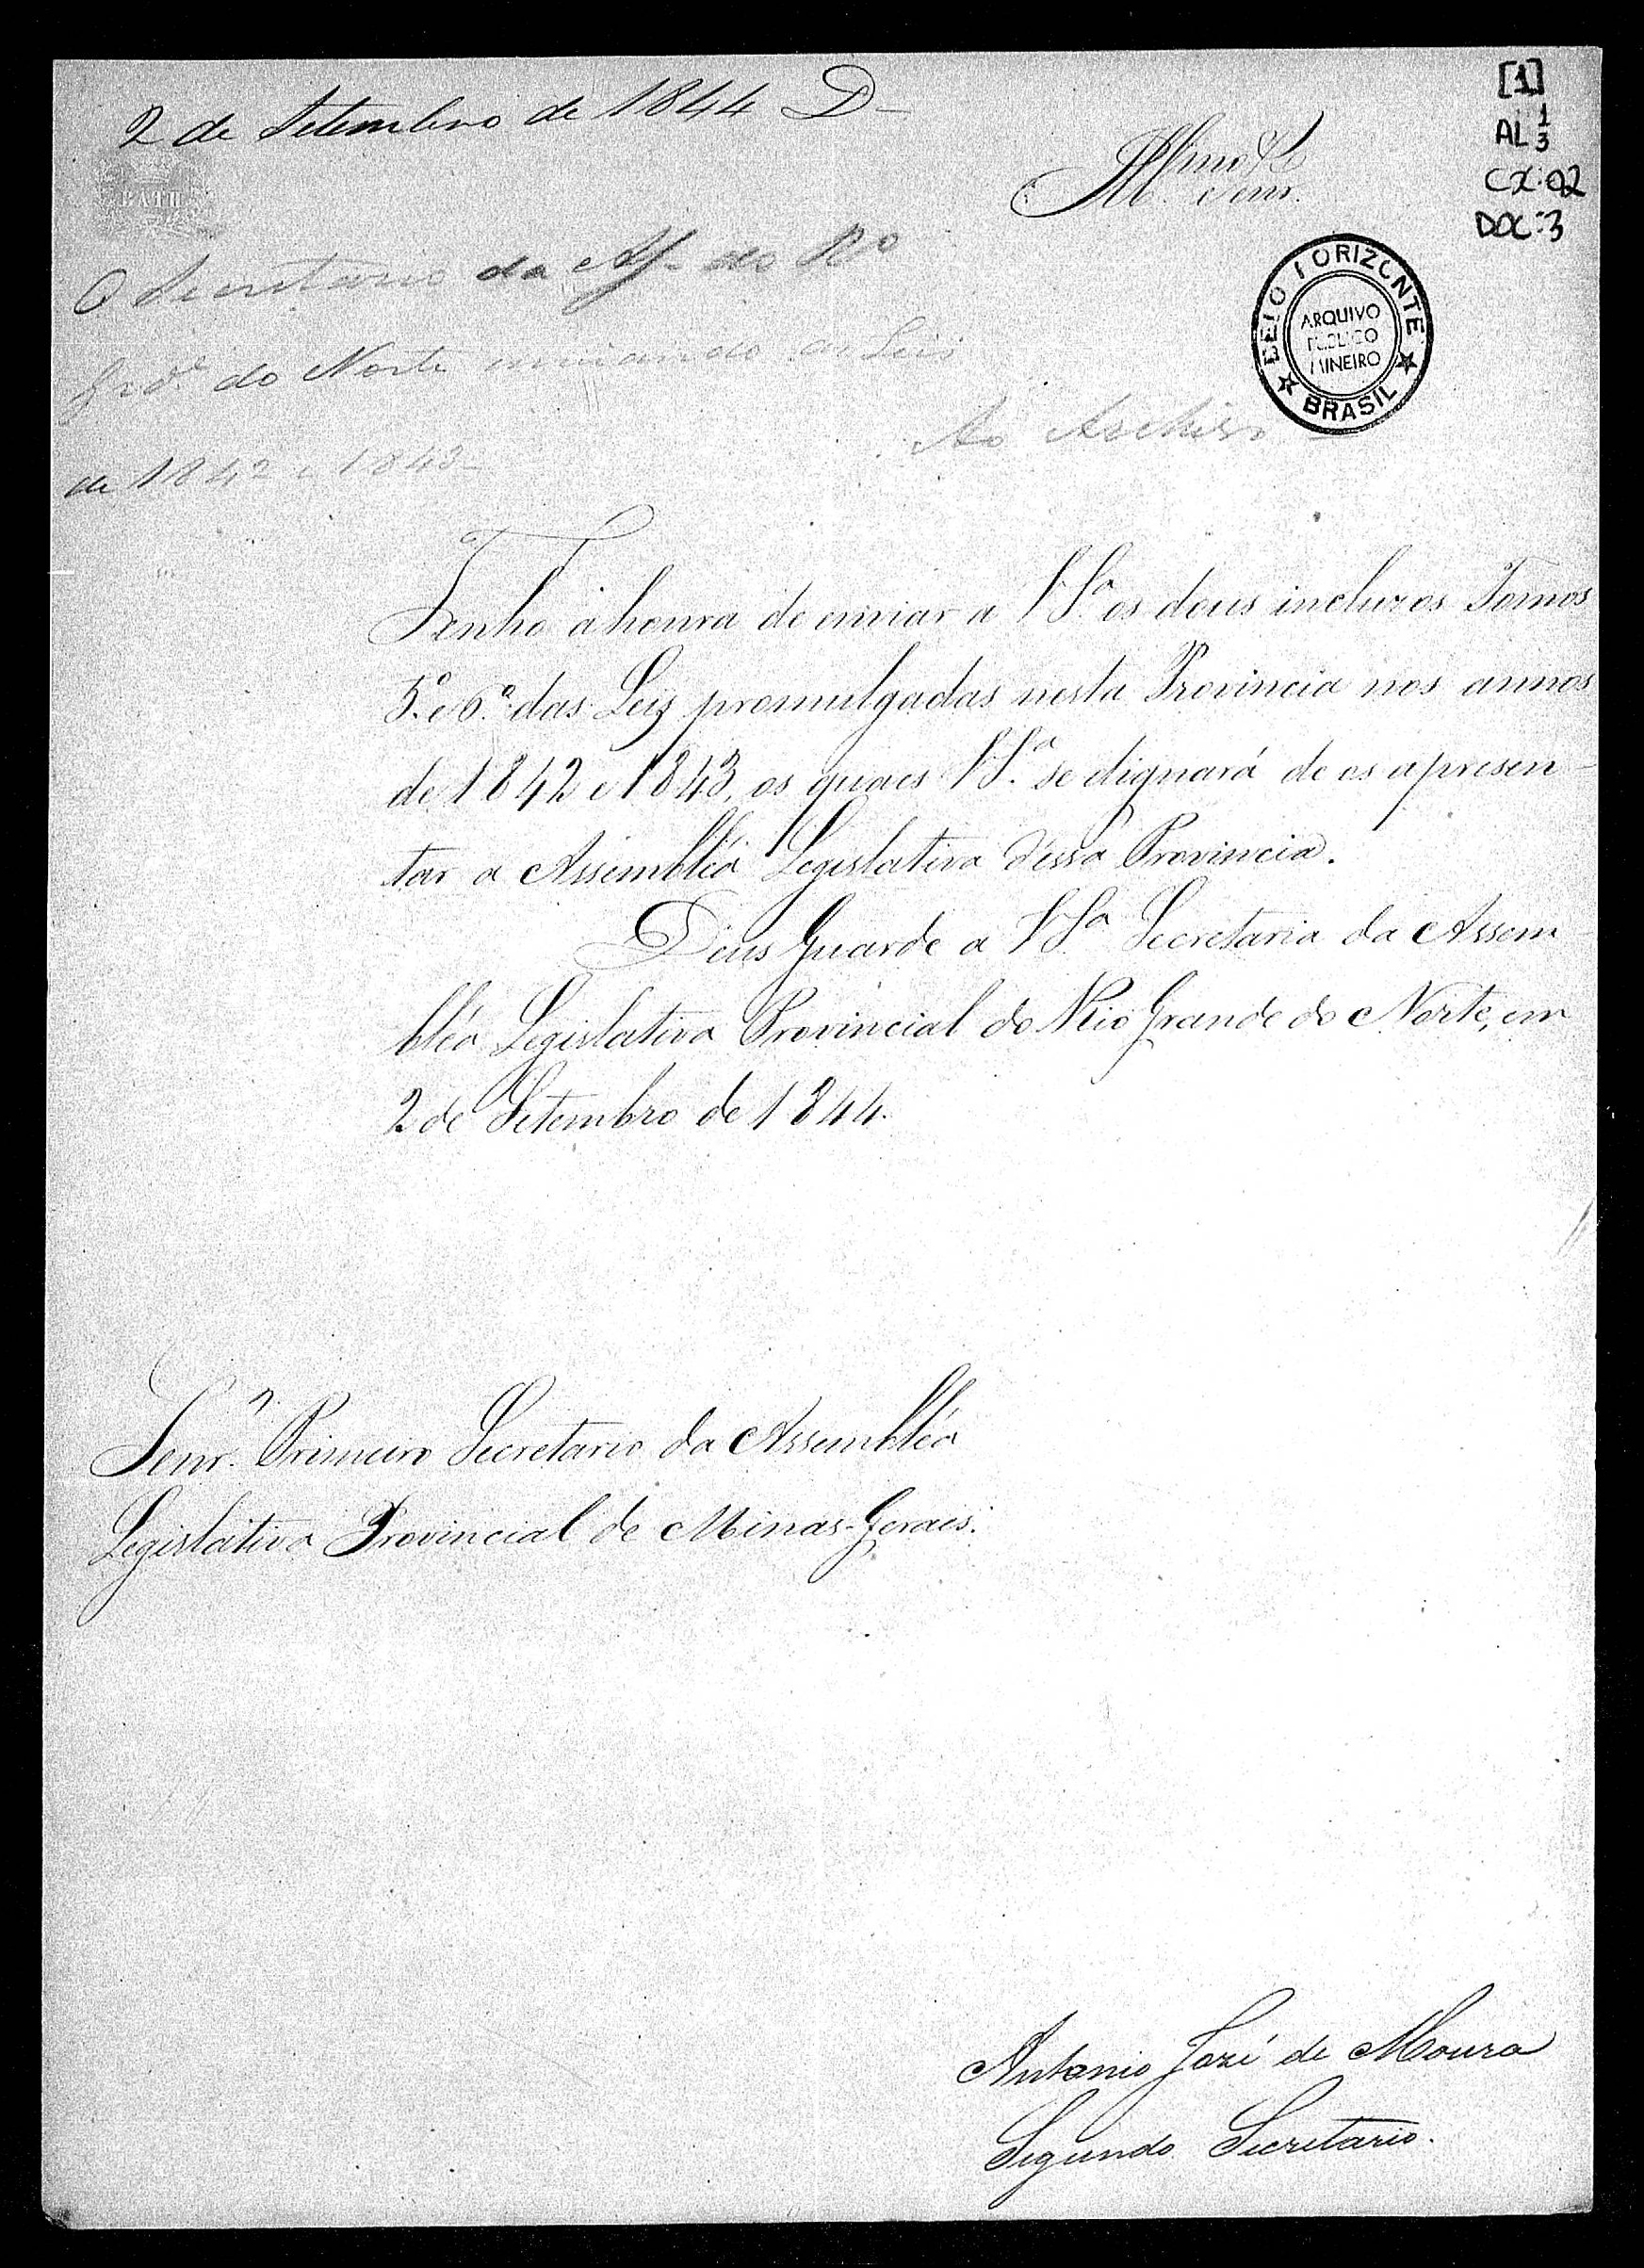 [1]
AL 1/3
CX: 02
DOC: 3
2 de Setembro de 1844 D
Illmo Senr.
BATH
BELO HORIZONTE
ARQUIVO
PUBLICO
MINEIRO
BRASIL
O Secretario da Ass. do Rº
Grd.e do Norte enviando as Leis
de 1842 e 1843
Ao Archivo
Tenho a honra de enviar a V S.ª os dous incluzos Tomos
5.º e 6.º das Leis promulgadas nesta Provincia nos annos
de 1842 e 1843, os quaes V S.ª se dignará de os apresen-
tar a Assembléa Legislativa d'essa Provincia.
Deus Guarde a V S.ª Secretaria da Assem-
bléa Legislativa Provincial do Rio Grande do Norte, em
2 de Setembro de 1844.
Senr. Primeiro Secretario da Assembléa
Legislativa Provincial de Minas-Geraes.
Antonio José de Moura
Segundo Secretario.